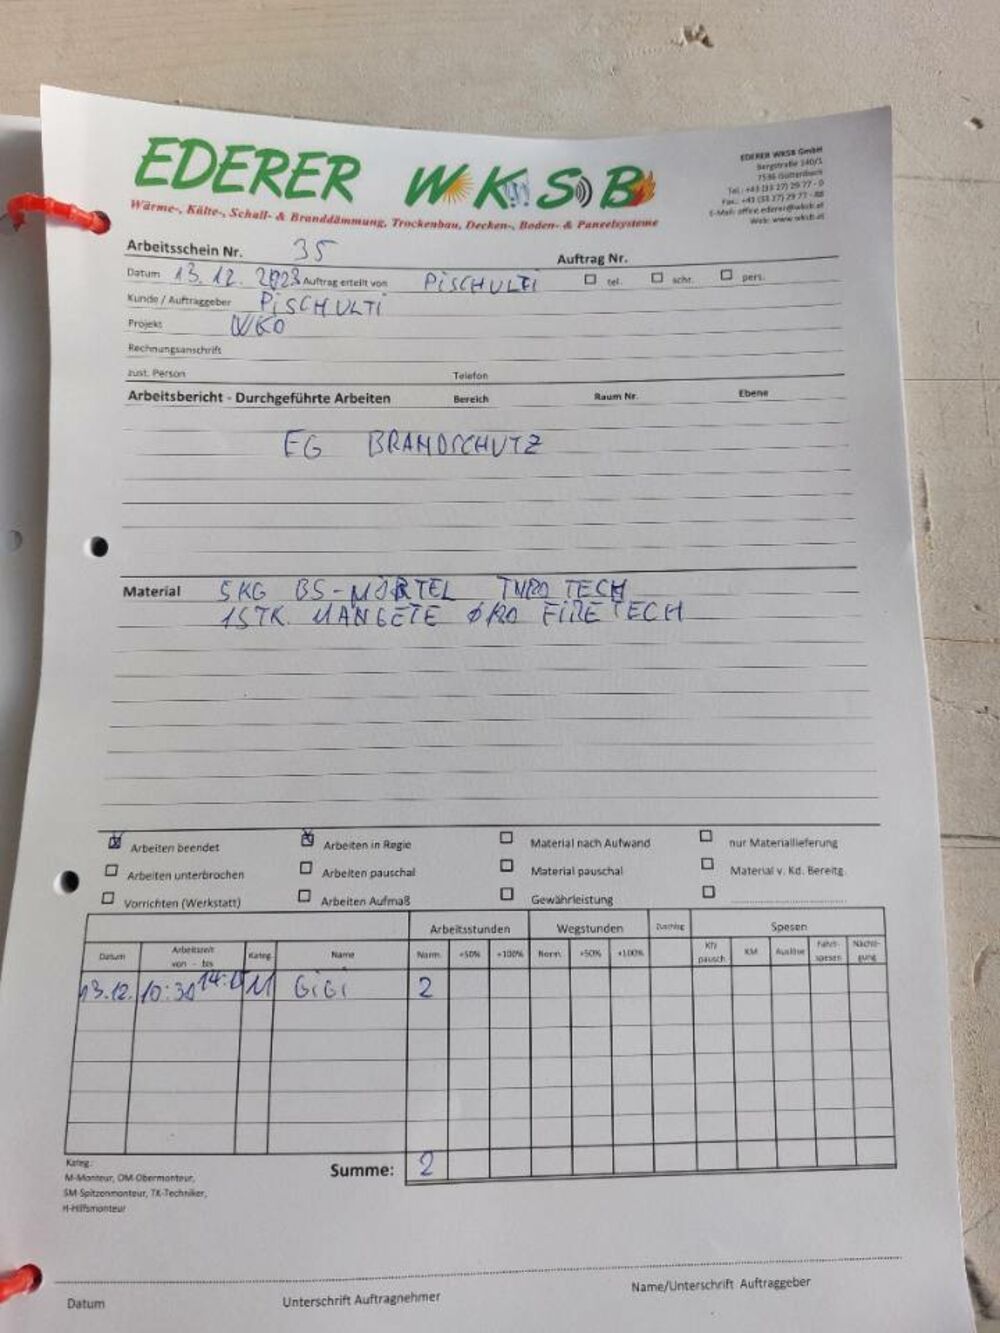 EDERER WKSB
Wärme-, Kälte-, Schall- & Branddämmung, Trockenbau, Decken-, Boden- & Paneelsysteme
EDERER WKSB GmbH
Bergstraße 140/1
7536 Güttenbach
Tel.: +43 (33 27) 29 77 - 0
Fax.: +43 (33 27) 29 77 - 88
E-Mail: office.ederer@wksb.at
Web: www.wksb.at
Arbeitsschein Nr. 35 Auftrag Nr.
Datum 13.12.2023 Auftrag erteilt von PISCHULTI tel. schr. pers.
Kunde / Auftraggeber PISCHULTI
Projekt WKO
Rechnungsanschrift
zust. Person Telefon
Arbeitsbericht - Durchgeführte Arbeiten Bereich Raum Nr. Ebene
EG BRANDSCHUTZ
Material 5KG BS-MÖRTEL TECH
1STK. MANGETE FIRETECH
Arbeiten beendet Arbeiten in Regie Material nach Aufwand nur Materiallieferung
Arbeiten unterbrochen Arbeiten pauschal Material pauschal Material v. Kd. Bereitg.
Vorrichten (Werkstatt) Arbeiten Aufmaß Gewährleistung
Arbeitsstunden Wegstunden Zuschlag Spesen
Datum Arbeitszeit von - bis Kateg. Name Norm. +50% +100% Norm. +50% +100% Kfz pausch. KM Auslöse Fahrtspesen Nächtigung
13.12. 10:30 M GIGI 2
Summe: 2
Kateg.:
M-Monteur, OM-Obermonteur,
SM-Spitzenmonteur, TK-Techniker,
H-Hilfsmonteur
Datum Unterschrift Auftragnehmer Name/Unterschrift Auftraggeber